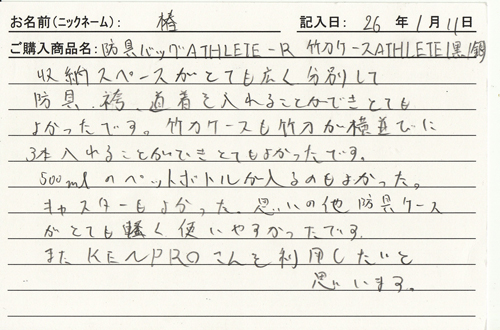 お名前(ニックネーム): 椿 記入日: 26 年 1 月 11 日
ご購入商品名: 防具バッグATHLETE-R 竹刀ケースATHLETE(黒/銀)
収納スペースがとても広く分別して
防具、袴、道着を入れることができとても
よかったです。竹刀ケースも竹刀が横並びに
3本入れることができとてもよかったです。
500mlのペットボトルが入るのもよかった。
キャスターもよかった。思いの他防具ケース
がとても軽く使いやすかったです。
また KENPROさんを利用したいと
思います。